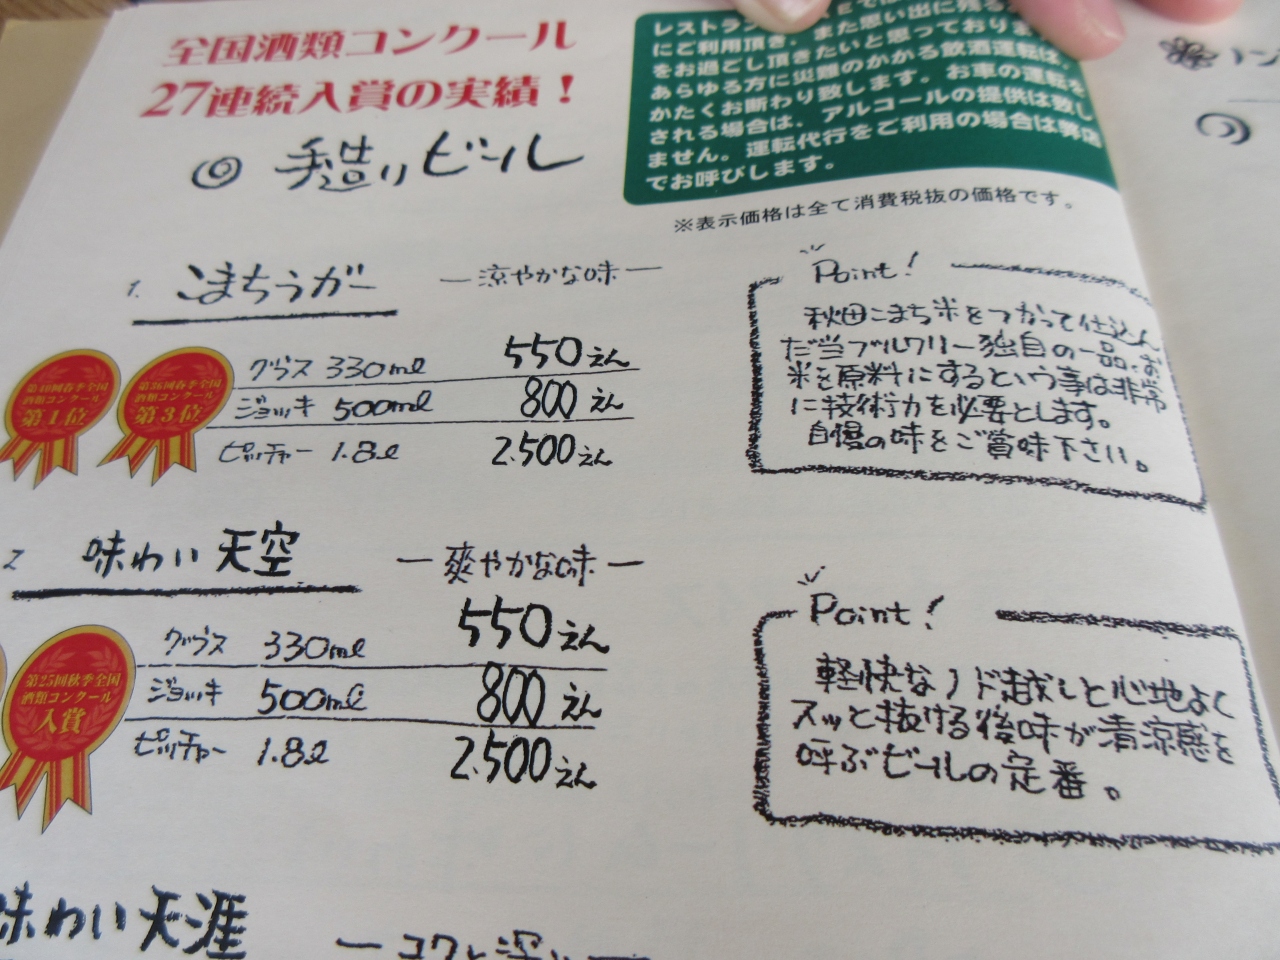 全国酒類コンクール
27連続入賞の実績！
◎ 手造りビール
レストラン
にご利用頂き。また思い出に残る
をお過ごし頂きたいと思っており
あらゆる方に災難のかかる飲酒運転は、
かたくお断わり致します。お車の運転を
される場合は、アルコールの提供は致し
ません。運転代行をご利用の場合は弊店
でお呼びします。
※表示価格は全て消費税抜の価格です。
1. こまちラガー ー涼やかな味ー
第36回春季全国
酒類コンクール
第1位
酒類コンクール
第3位
グラス 330ml 550えん
ジョッキ 500ml 800えん
ピッチャー 1.8l 2.500えん
Point!
秋田こまち米をつかって仕込ん
だ当ブルワリー独自の一品。お
米を原料にするという事は非常
に技術力を必要とします。
自慢の味をご賞味下さい。
2 味わい天空 ー爽やかな味ー
第25回秋季全国
酒類コンクール
入賞
グラス 330ml 550えん
ジョッキ 500ml 800えん
ピッチャー 1.8l 2.500えん
Point!
軽快なノド越しと心地よく
スッと抜ける後味が清涼感を
呼ぶビールの定番。
味わい天涯 ーコクと深い